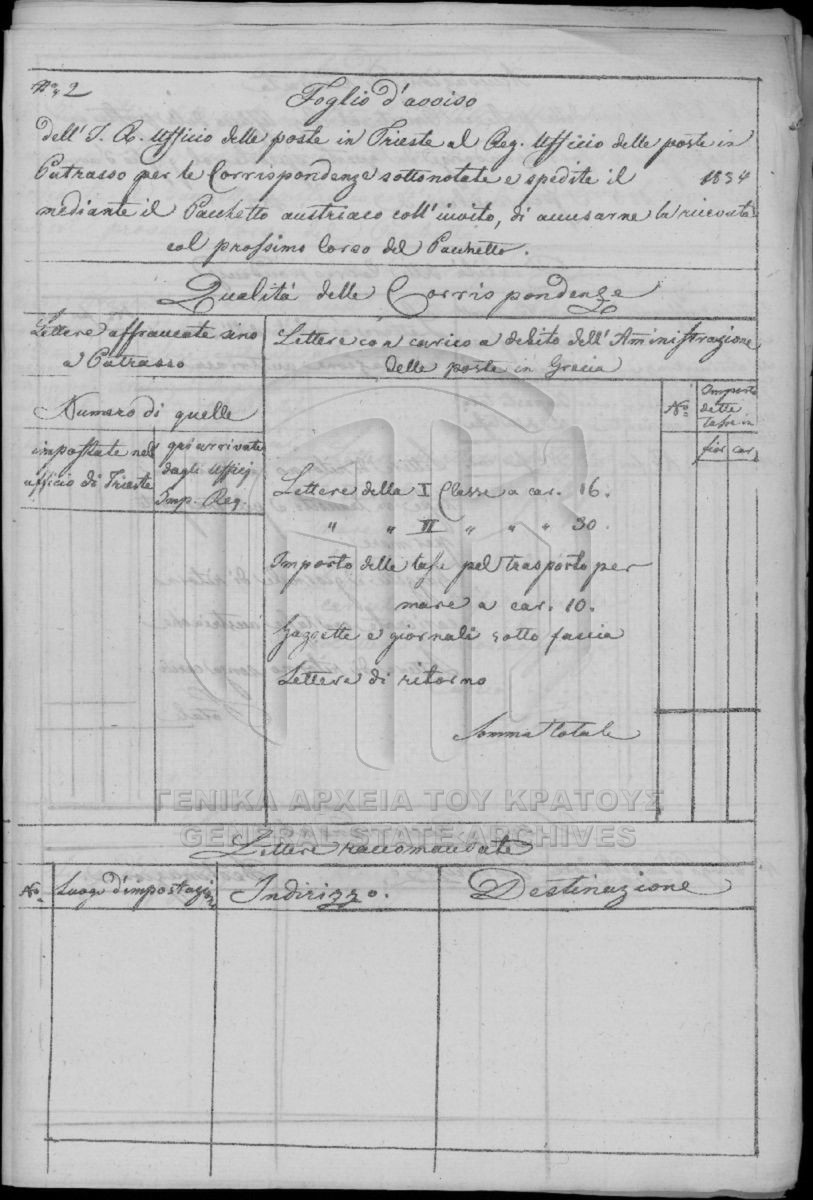 No. 2
Foglio d'avviso
dell' I. R. Ufficio delle poste in Trieste al Reg. Ufficio delle poste in
Patrasso per le Corrispondenze sottonotate e spedite il 1834
mediante il Pacchetto austriaco coll' invito, di accusarne la ricevuta
col prossimo Corso del Pacchetto.
Qualitá delle Corrispondenze
Lettere affrancate sino
a Patrasso
Lettere con carico a debito dell' Aministrazione
delle poste in Grecia
Numero di quelle
impostate nell
ufficio di Trieste
quì arrivate
dagli Ufficj
Imp. Reg.
No.
Importo
dette
tasse in
fior car.
Lettere della I Classe a car. 16.
" " II " " " 30.
Importo delle tasse pel trasporto per
mare a car. 10.
Gazzette e giornali sotto fascia
Lettere di ritorno
Somma totale
ΓΕΝΙΚΑ ΑΡΧΕΙΑ ΤΟΥ ΚΡΑΤΟΥΣ
GENERAL STATE ARCHIVES
Lettere raccomandate
No
Luogo d'impostazione
Indirizzo.
Destinazione